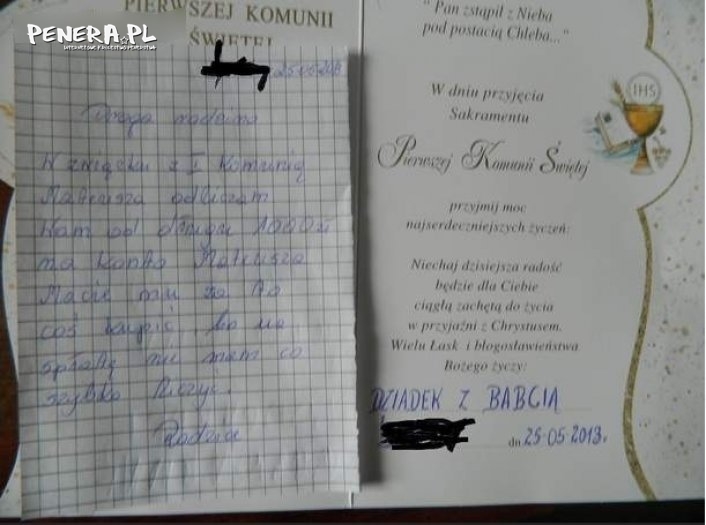 PIERWSZEJ KOMUNII
ŚWIĘTEJ
PENERA.PL
25-05-2013
Droga rodzino
W związku z I Komunią
Mateusza odliczam
Wam od długu 1000 zł
na konto Mateusza
Macie mu za to
coś kupić, bo na
spłatę nie mam co
szybko liczyć.
Rodzice
"Pan zstąpił z Nieba
pod postacią Chleba..."
IHS
W dniu przyjęcia
Sakramentu
Pierwszej Komunii Świętej
przyjmij moc
najserdeczniejszych życzeń:
Niechaj dzisiejsza radość
będzie dla Ciebie
ciągłą zachętą do życia
w przyjaźni z Chrystusem.
Wielu Łask i błogosławieństwa
Bożego życzy:
DZIADEK Z BABCIĄ
dn 25-05-2013r